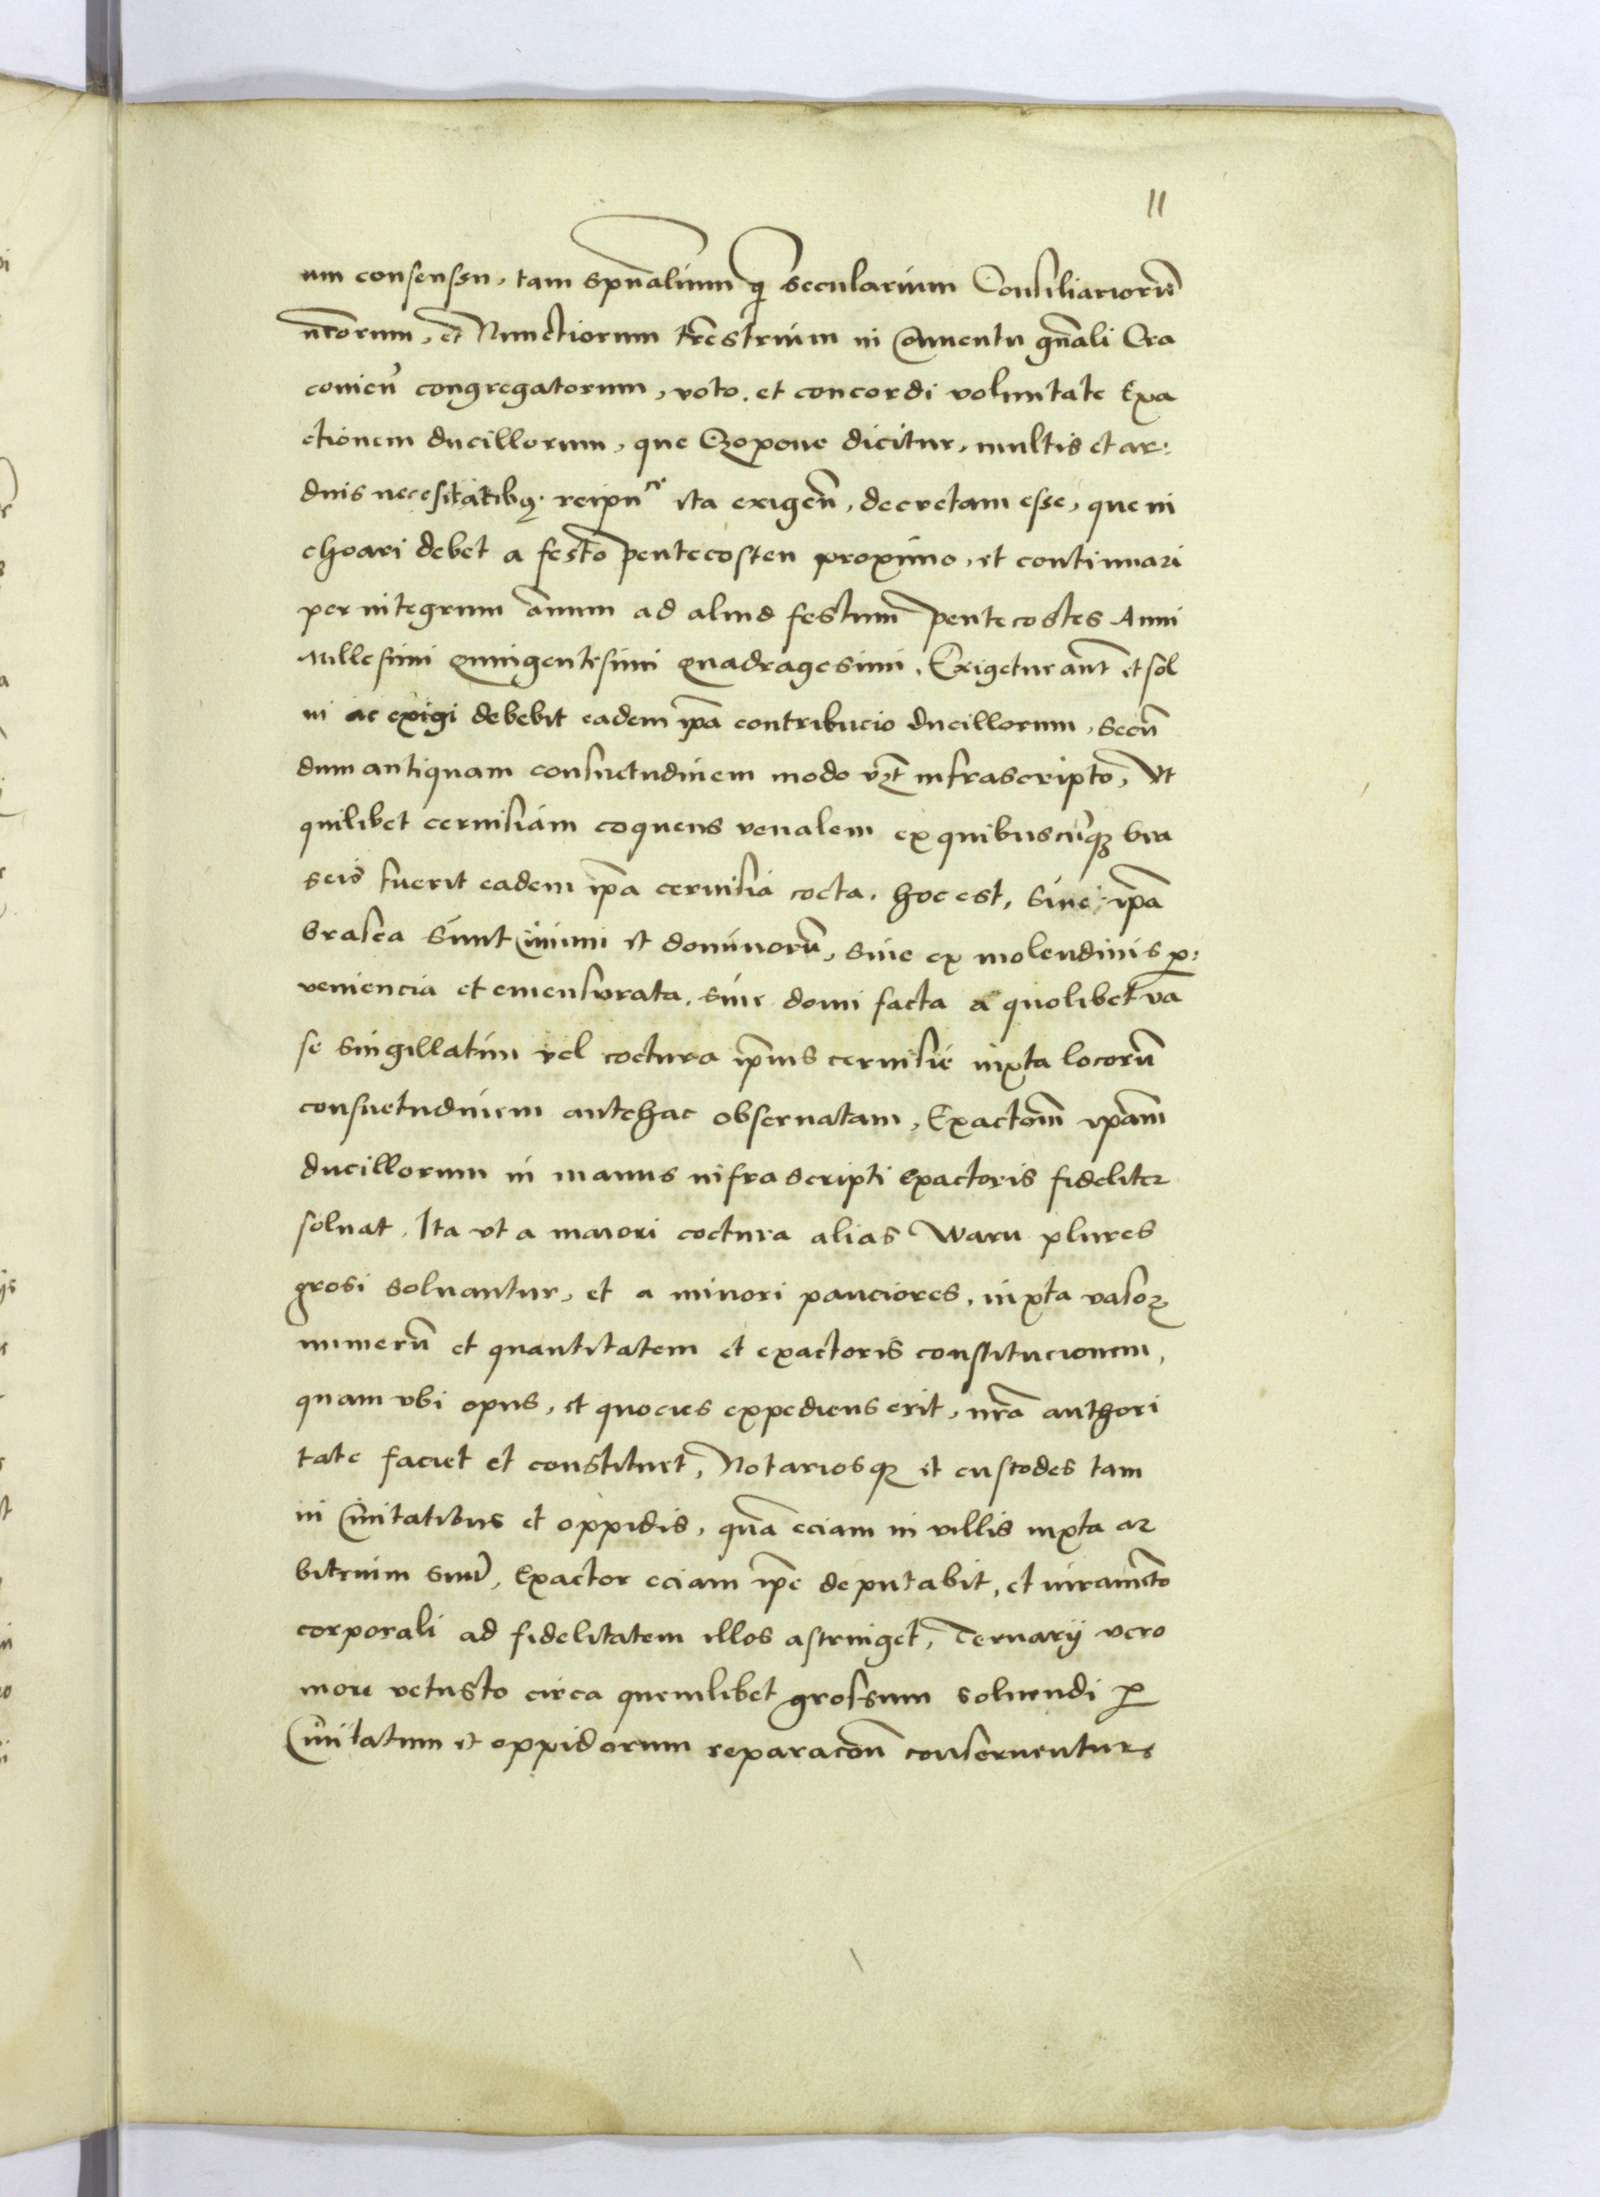 11
um consensu, tam spūalium q̃ secularium Consiliariorū
nr̄orum, et Nunctiorum tr̄estrium in Cōuentu gn̄ali Cra
couień congregatorum, voto, et concordi voluntate Exa
ctionem ducillorum, que Czopoue dicitur, multis et ar:
duis necesitatibꝫ reipuᶜᵉ ita exigeñ, decretam esse, que in
choari debet a festo pentecosten proximo, et continuari
per integrum annum ad aliud festum pentecostes Anni
Millesimi Quingentesimi Quadragesimi, Exigetur aut̄ et sol
ui ac exigi debebit eadem ip̄a contribucio ducillorum, secū
dum antiquam consuetudinem modo vꝫt infrascripto, Vt
quilibet ceruisiam coquens venalem ex quibuscūqꝫ bra
seis fuerit eadem ip̄a ceruisia cocta, hoc est, siue ip̄a
brasea sunt Ciuium et dominorū, siue ex molendinis p̱:
ueniencia et emensurata, siue domi facta a quolibet va
se singillatim vel coctura ip̄ius ceruisie iuxta locorū
consuetudinem antehac obseruatam, Exactōm̄ ip̄am
ducillorum in manus infrascripti Exactoris fideliter
soluat, Ita vt a maiori coctura alias Waru plures
grosi soluantur, et a minori pauciores, iuxta vasoꝝ
numerū et quantitatem et exactoris constitucionem,
quam vbi opus, et quocies expediens erit, nr̄a authori
tate faciet et constituet, Notariosqꝫ et custodes tam
in Ciuitatibus et oppidis, quā eciam in villis iuxta ar
bitrium suū, Exactor eciam ip̄e deputabit, et iuramēto
corporali ad fidelitatem illos astringet, Ternarij vero
more vetusto circa quemlibet grossum soluendi p̱
Ciuitatum et oppidorum reparacōn̄ conseruentur,